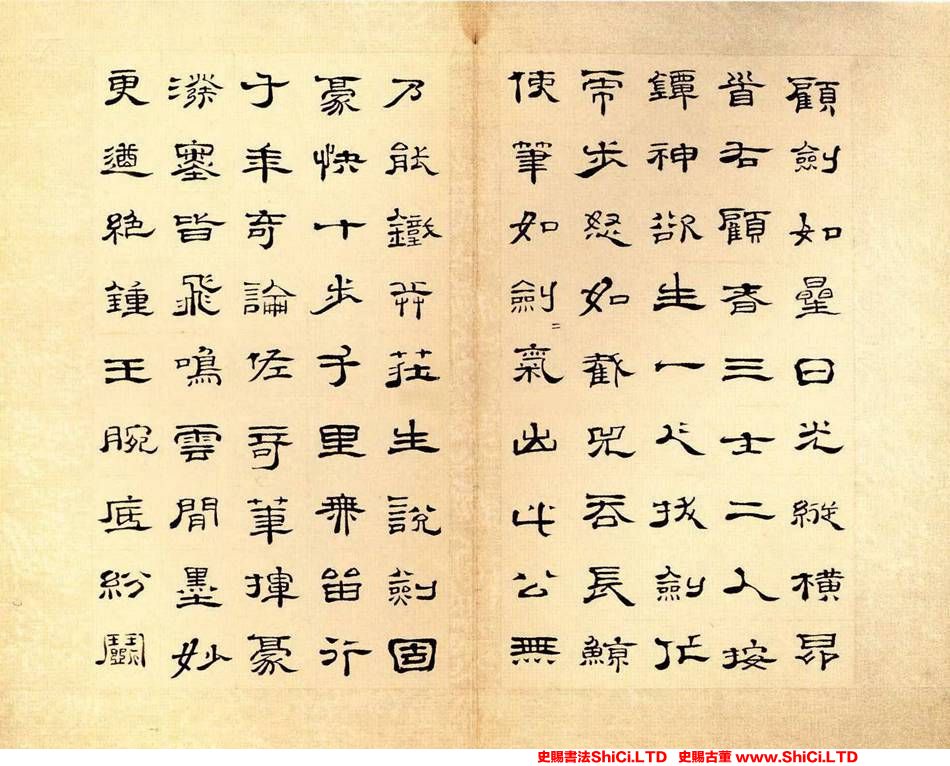 顧劍如星日光縱橫昂
首右顧者三士二人按
鐔神欲生一人拔劍作
虎步怒如截兕吞長鯨
使筆如劍〻氣出此公無
乃能鐵耕莊生說劍固
豪快十步千里無留行
子年奇論佐奇筆揮豪
潑墨皆飛鳴雲間墨妙
更遒絕鍾王腕底紛鬭
史賜書法ShiCi.LTD 史賜古董 www.ShiCi.LTD